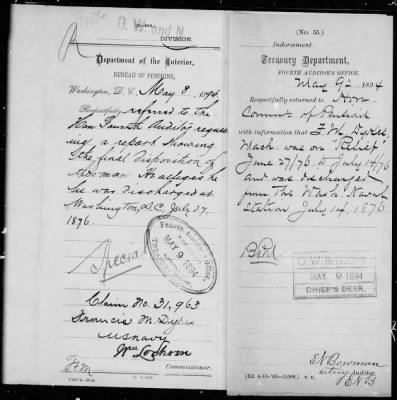 O. W. and N.
DIVISION.
Department of the Interior,
BUREAU OF PENSIONS,
Washington, D. C., May 8, 1894
Respectfully referred to the
Hon. Fourth Auditor reques
ing a report showing
the final disposition of
this man. He alleges he
he was discharged at
Washington, D.C. July 27,
1876.
Special
Fourth Auditor's Office,
MAY 9 1894
Claim No. 31,963
Francis M. Dykes
U.S. navy
Wm Lochren
Commissioner.
(No. 55.)
Indorsement.
Treasury Department,
FOURTH AUDITOR'S OFFICE.
May 9, 1894
Respectfully returned to Hon.
Comr. of Pensions
with information that F. M. Dykes,
Mach. was on "Relief"
June 27/76 to July 14/76
and was discharged
from the Wash. Naval
Station July 14, 1876
O. W. & N. DIV.
MAY 9 1894
CHIEF'S DESK.
E N Bowman
acting Auditor.